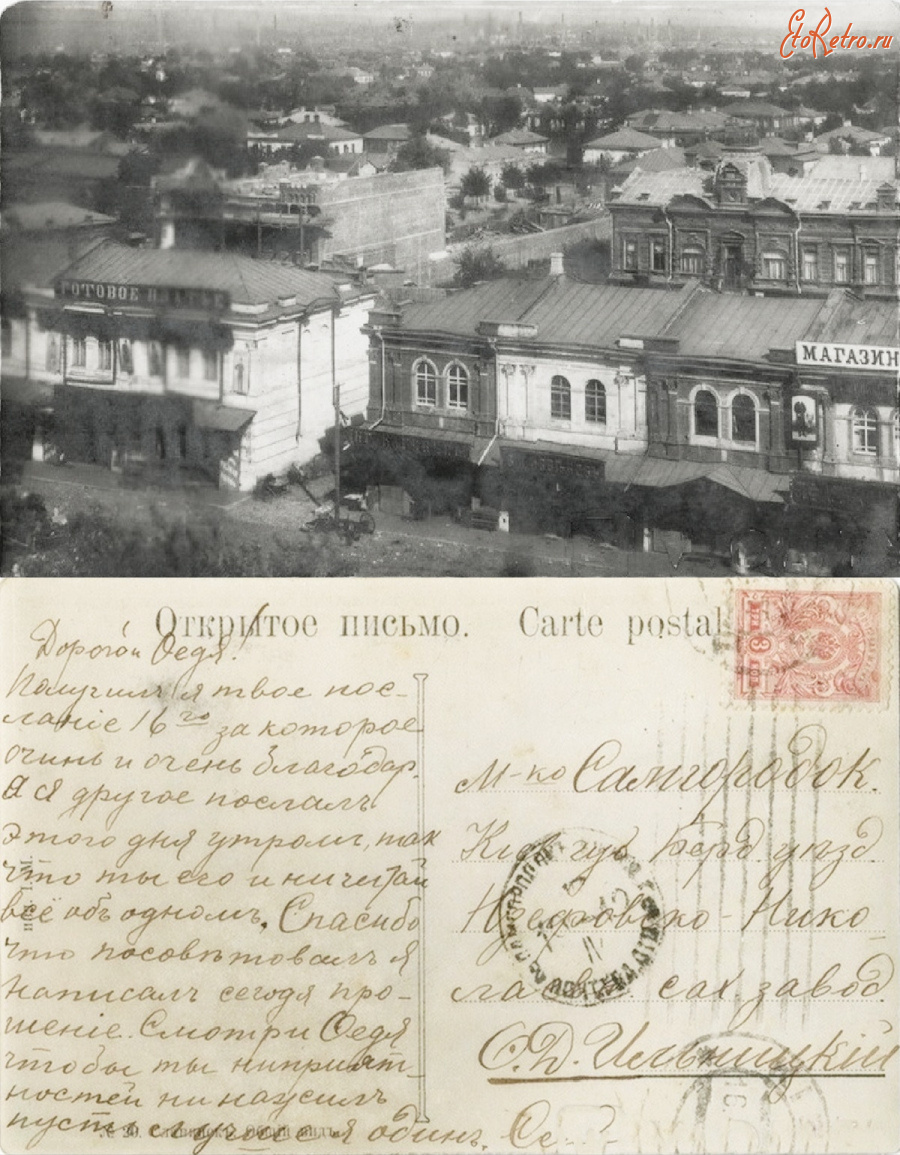 EtoRetro.ru
ГОТОВОЕ ПЛАТЬЕ
МАГАЗИН
Открытое письмо. Carte postal
Дорогой Федя!
Получилъ я твое пос-
ланіе 16го за которое
очинь и очень благодар.
А я другое послалъ
этого дня утромъ, так
что ты его и ничитай
всё объ одномъ. Спасибо
что посовѣтовалъ я
написалъ сегодя про-
шеніе. Смотри Федя
чтобы ты ниприят-
ностей ни нажилъ
пусть я один.
№ 20. Славянскъ. Общій видъ.
м-ко Самгородок.
Киев губ Берд. уѣзд.
Юзефовско-Нико-
лаев. сах завод.
Ѳ. Д. Ильницкій
3 КОП